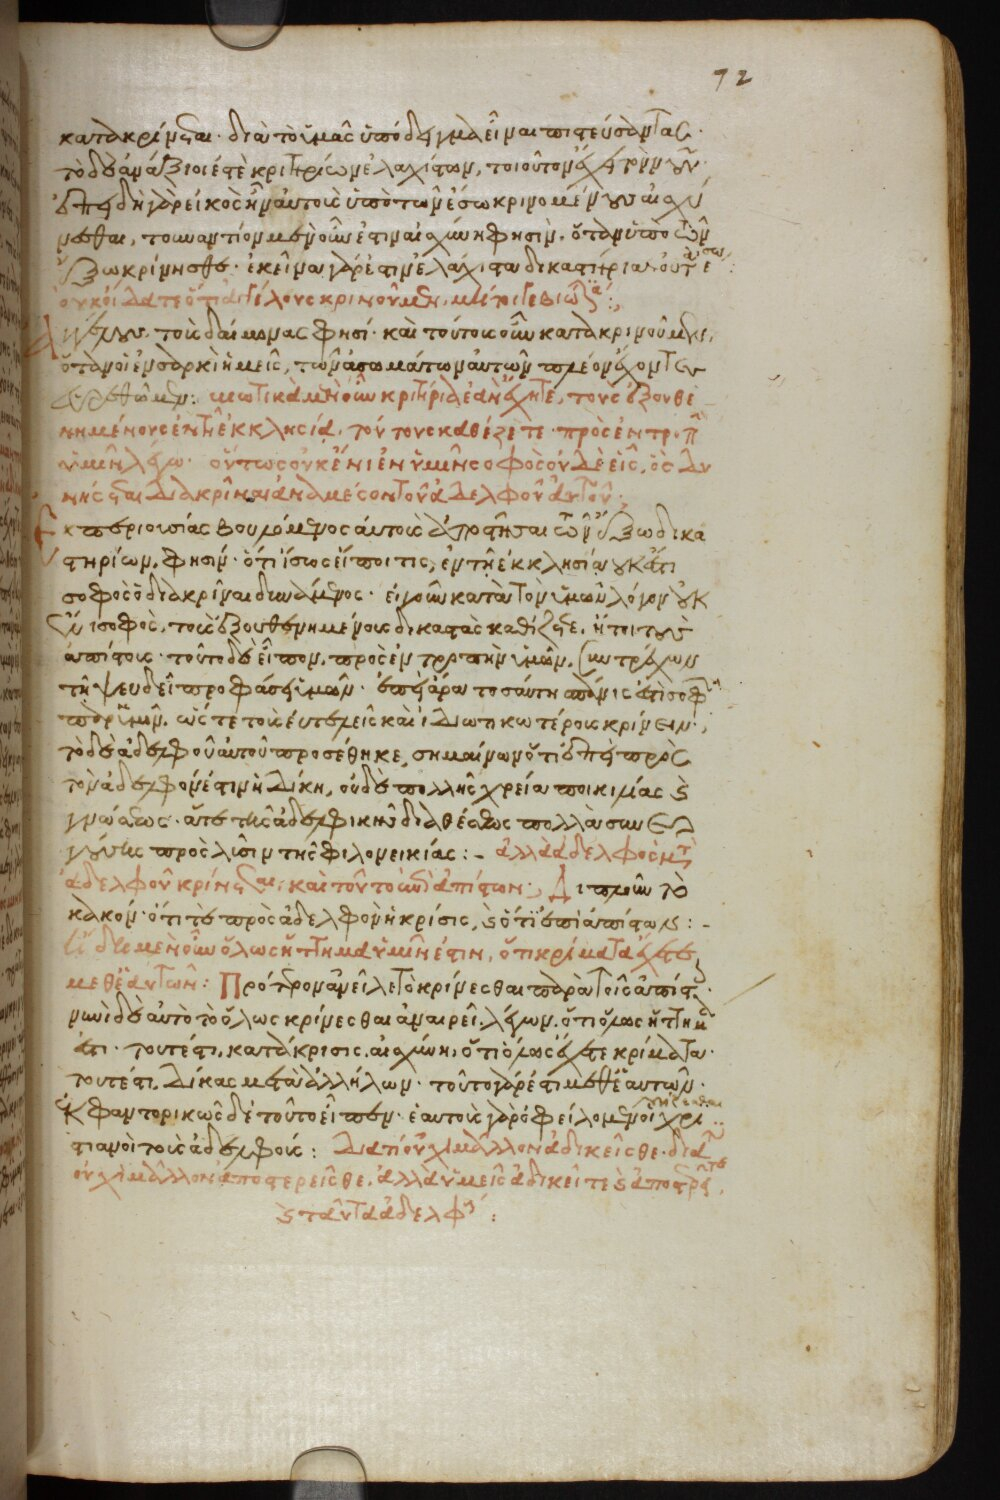 72
κατακρίνεται· διὰ τὸ ὑμᾶς ὑπόδειγμα εἶναι πιστεύσαντας·
τὸ δὲ ἀνάξιοί ἐστε κριτηρίων ἐλαχίστων, τοιοῦτον
ἐπειδὴ γὰρ εἰκὸς ἦν αὐτοὺς ὑπὸ τῶν ἔσω κρινομένους αἰσχύ
νεσθαι, τοὐναντίον μὲν οὖν ἐστιν αἰσχύνη φησὶν, ὅταν ὑπὸ τῶν
ἔξω κρίνησθε· ἐκεῖνα γάρ ἐστιν ἐλάχιστα δικαστήρια οὐ
οὐκ οἴδατε ὅτι ἀγγέλους κρινοῦμεν, μήτι γε βιωτικά:
Ἀγγέλους τοὺς δαίμονας φησί· καὶ τούτους οὖν κατακρινοῦμεν,
ὅταν οἱ ἐν σαρκὶ ἡμεῖς, τῶν ἀσωμάτων αὐτῶν πλέον ἔχοντες
εὑρεθῶμεν: βιωτικὰ μὲν οὖν κριτήρια ἐὰν ἔχητε, τοὺς ἐξουθε
νημένους ἐν τῇ ἐκκλησίᾳ, τούτους καθίζετε· πρὸς ἐντροπὴν
ὑμῖν λέγω· οὕτως οὐκ ἔνι ἐν ὑμῖν σοφὸς οὐδὲ εἷς, ὃς δυ
νήσεται διακρῖναι ἀνὰ μέσον τοῦ ἀδελφοῦ αὐτοῦ;
Ἐκ περιουσίας βουλόμενος αὐτοὺς ἀποτρέψαι τῶν ἔξω δικα
στηρίων, φησὶν· ὅτι ἴσως εἴποι τις, ἐν τῇ ἐκκλησίᾳ οὐκ ἔστι
σοφὸς ὁ διακρῖναι δυνάμενος· εἰ γοῦν κατὰ τὸν ὑμῶν λόγον οὐκ
ἔνι σοφὸς, τοὺς ἐξουθενημένους δικαστὰς καθίζετε, ἤτοι τοὺς
ἀπίστους· τοῦτο δὲ εἶπον, πρὸς ἐντροπὴν ὑμῶν,
τῇ ψευδεῖ προφάσει ὑμῶν· ἐπεὶ ἄρα τοσαύτη σπάνις ἐστὶ σοφῶν
παρ' ὑμῖν, ὥστε τοὺς εὐτελεῖς καὶ ἰδιωτικωτέρους κρίνειν;
τὸ δὲ ἀδελφοῦ αὐτοῦ προσέθηκε, σημαίνων ὅτι ἐπεὶ πρὸς
τὸν ἀδελφόν ἐστιν ἡ δίκη, οὐδὲ πολλῆς χρεία ποικιλίας καὶ
γνώσεως· ἅτε τῆς ἀδελφικῆς διαθέσεως πολλὰ συνερ
γούσης πρὸς λύσιν τῆς φιλονεικίας:- ἀλλὰ ἀδελφὸς μετὰ
ἀδελφοῦ κρίνεται, καὶ τοῦτο ἐπὶ ἀπίστων; Διπλοῦν τὸ
κακόν· ὅτι τε πρὸς ἀδελφὸν ἡ κρίσις, καὶ ὅτι ἐπὶ ἀπίστων:-
Ἤδη μὲν οὖν ὅλως ἥττημα ὑμῖν ἐστιν, ὅτι κρίματα ἔχετε
μεθ' ἑαυτῶν: Πρότερον ἀνεῖλε τὸ κρίνεσθαι παρὰ τοῖς ἀπίστοις·
νυνὶ δὲ αὐτὸ τὸ ὅλως κρίνεσθαι ἀναιρεῖ. λέγων, ὅτι ὅλως ἥττημα
ἐστι· τουτέστι, κατάκρισις, αἰσχύνη, ὅτι ὅλως ἔχετε κρίματα·
τουτέστι, δίκας μετὰ ἀλλήλων· τοῦτο γάρ ἐστι μεθ' ἑαυτῶν·
ἐκφαντορικῶς δὲ τοῦτο εἶπεν· ἑαυτοὺς γὰρ ὀφείλομεν οἱ χρι
στιανοὶ τοὺς ἀδελφούς: Διατί οὐχὶ μᾶλλον ἀδικεῖσθε· διατί
οὐχὶ μᾶλλον ἀποστερεῖσθε, ἀλλὰ ὑμεῖς ἀδικεῖτε καὶ ἀποστερεῖτε,
καὶ ταῦτα ἀδελφούς: